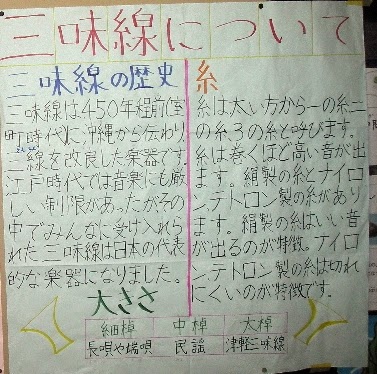 三味線について
三味線の歴史
三味線は450年程前室
町時代に、沖縄から伝わり
三線を改良した楽器です。
江戸時代では音楽にも厳
しい制限があったがその
中でみんなに受け入れら
れた三味線は日本の代表
的な楽器になりました。
糸
糸は太い方から一の糸二
の糸3の糸と呼びます。
糸は巻くほど高い音が出
ます。絹製の糸とナイロ
ンテトロン製の糸があり
ます。絹製の糸はいい音
が出るのが特徴。ナイロ
ンテトロン製の糸は切れ
にくいのが特徴です。
大きさ
細棹 中棹 太棹
長唄や端唄 民謡 津軽三味線